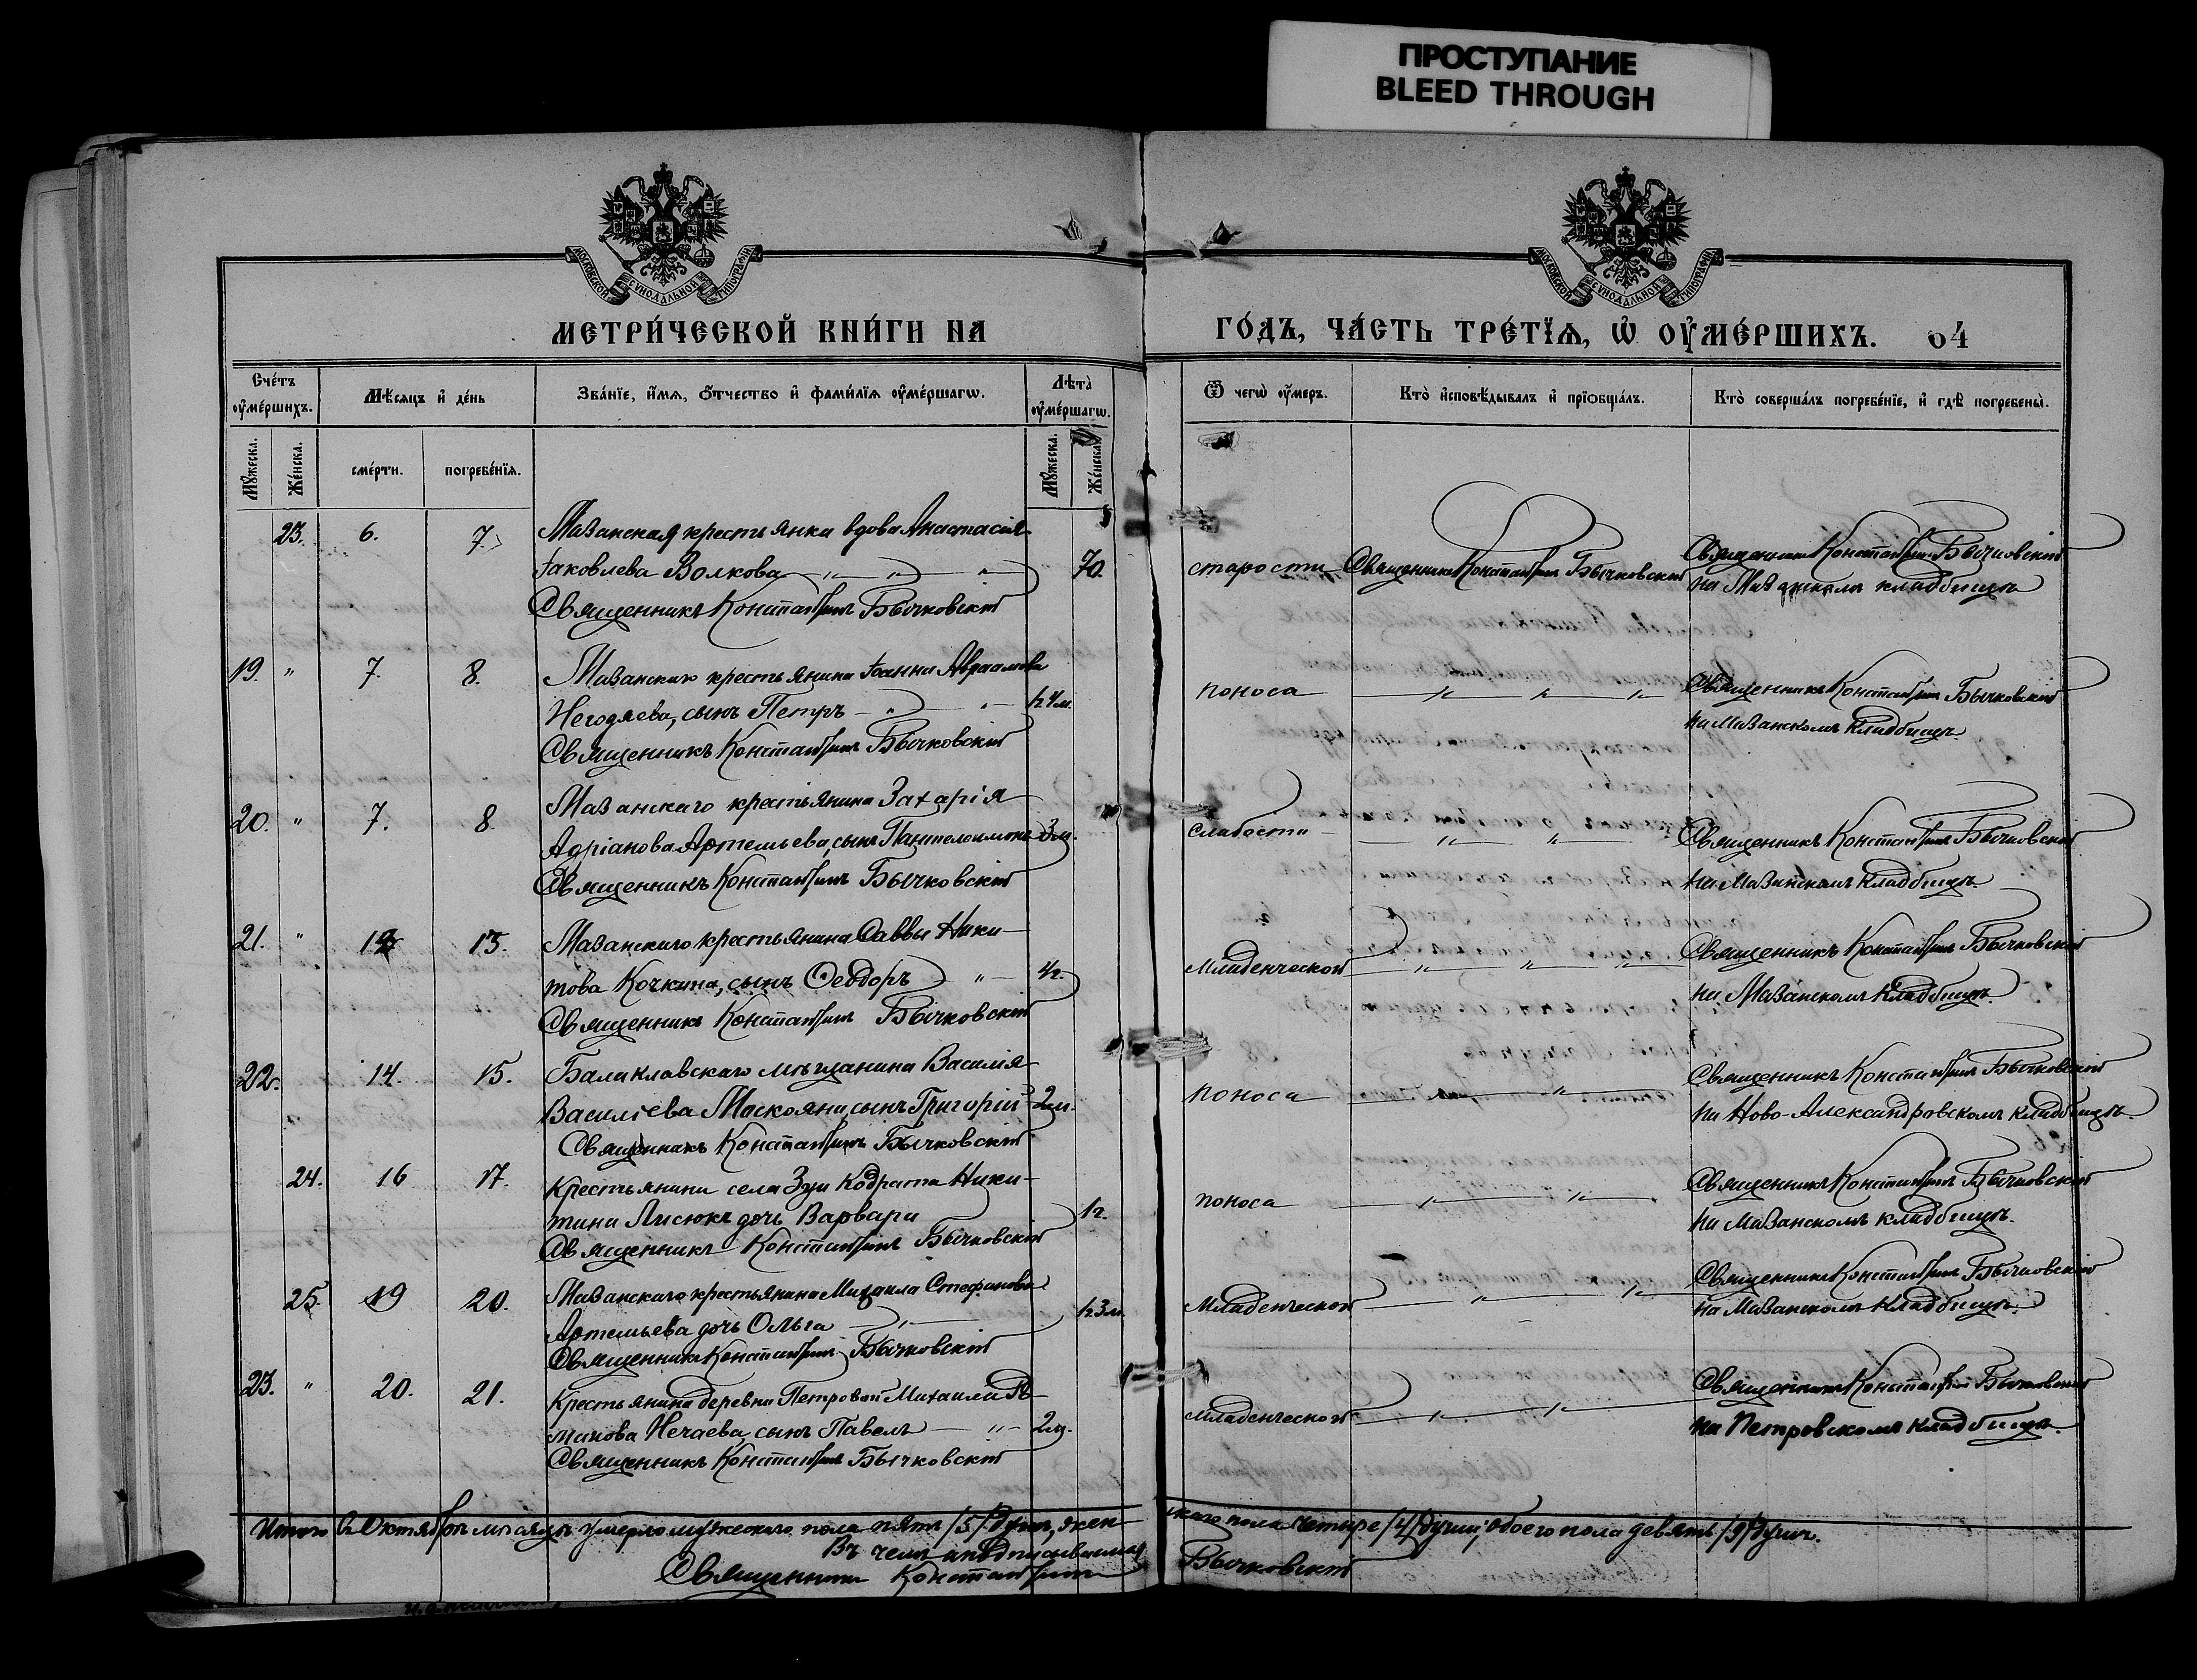 ПРОСТУПАНИЕ
BLEED THROUGH
МОСКОВСКОЙ СѴНОДАЛЬНОЙ ТИПОГРАФІИ
МОСКОВСКОЙ СѴНОДАЛЬНОЙ ТИПОГРАФІИ
МЕТРИ́ЧЕСКОЙ КНИ́ГИ НА
ГО́ДЪ, ЧА́СТЬ ТРЕ́ТЇѦ, Ѡ҆ ОУ҆МЕ́РШИХЪ. 64
Сче́тъ оу҆ме́ршихъ.
Мѣ́сяцъ и҆ де́нь
Зва́нїе, и҆́мѧ, ѻ҆́тчество и҆ фами́лїѧ оу҆ме́ршагѡ.
Лѣ́та оу҆ме́ршагѡ.
Ѿ чегѡ̀ оу҆́меръ.
Кто̀ и҆сповѣ́дывалъ и҆ прїѻбща́лъ.
Кто̀ соверша́лъ погребе́нїе, и҆ гдѣ̀ погребены̀.
Мꙋ́жеска. Же́нска. сме́рти. погребе́нїѧ. Мꙋ́жеска. Же́нска.
23. 6. 7. Мазанская крестьянка вдова Анастасія
Іаковлева Волкова — „ — „ — „ 70.
Священникъ Константинъ Бычковскій
старости Священникъ Константинъ Бычковскій Священникъ Константинъ Бычковскій
на Мазанскомъ кладбищѣ
19. „ 7. 8. Мазанскаго крестьянина Іоанна Авраамова
Негодяева, сынъ Петръ — „ — „ — 1г. 4м.
Священникъ Константинъ Бычковскій
поноса — „ — „ — „ Священникъ Константинъ Бычковскій
на Мазанскомъ кладбищѣ.
20. „ 7. 8. Мазанскаго крестьянина Захарія
Адріанова Артемьева, сынъ Пантелеимонъ 3м.
Священникъ Константинъ Бычковскій
Слабости — „ — „ — Священникъ Константинъ Бычковскій
на Мазанскомъ кладбищѣ.
21. „ 13. Мазанскаго крестьянина Саввы Ники-
това Кочкина, сынъ Ѳеодоръ „ — 1/2г.
Священникъ Константинъ Бычковскій
Младенческой — „ — „ — „ — Священникъ Константинъ Бычковскій
на Мазанскомъ кладбищѣ.
22. 14. 15. Балаклавскаго мѣщанина Василія
Василіева сынъ Григорій — 2м.
Священникъ Константинъ Бычковскій
поноса — „ — „ — Священникъ Константинъ Бычковскій
на Ново-Александровскомъ кладбищѣ.
24. 16 17. Крестьянина села Зуи Кодрата Ники-
тина Лисюкъ дочь Варвара 1г.
Священникъ Константинъ Бычковскій
поноса — „ — „ — Священникъ Константинъ Бычковскій
на Мазанскомъ кладбищѣ.
25. 19 20. Мазанскаго крестьянина Михаила Стефанова
Артемьева дочь Ольга — „ — 1г. 3м.
Священникъ Константинъ Бычковскій
Младенческой — „ — „ — Священникъ Константинъ Бычковскій
на Мазанскомъ кладбищѣ.
23. „ 20. 21. Крестьянина деревни Петровой Михаила
Нечаева, сынъ Павелъ — „ — 2м.
Священникъ Константинъ Бычковскій
Младенческой — „ — „ — Священникъ Константинъ Бычковскій
на Петровскомъ кладбищѣ.
Итого въ Октябрѣ мѣсяцѣ умерло мужескаго пола пять /5/ душъ, жен-
скаго пола четыре /4/ души; обоего пола девять /9/ душъ.
Въ чемъ и подписываемся
Священникъ Константинъ Бычковскій